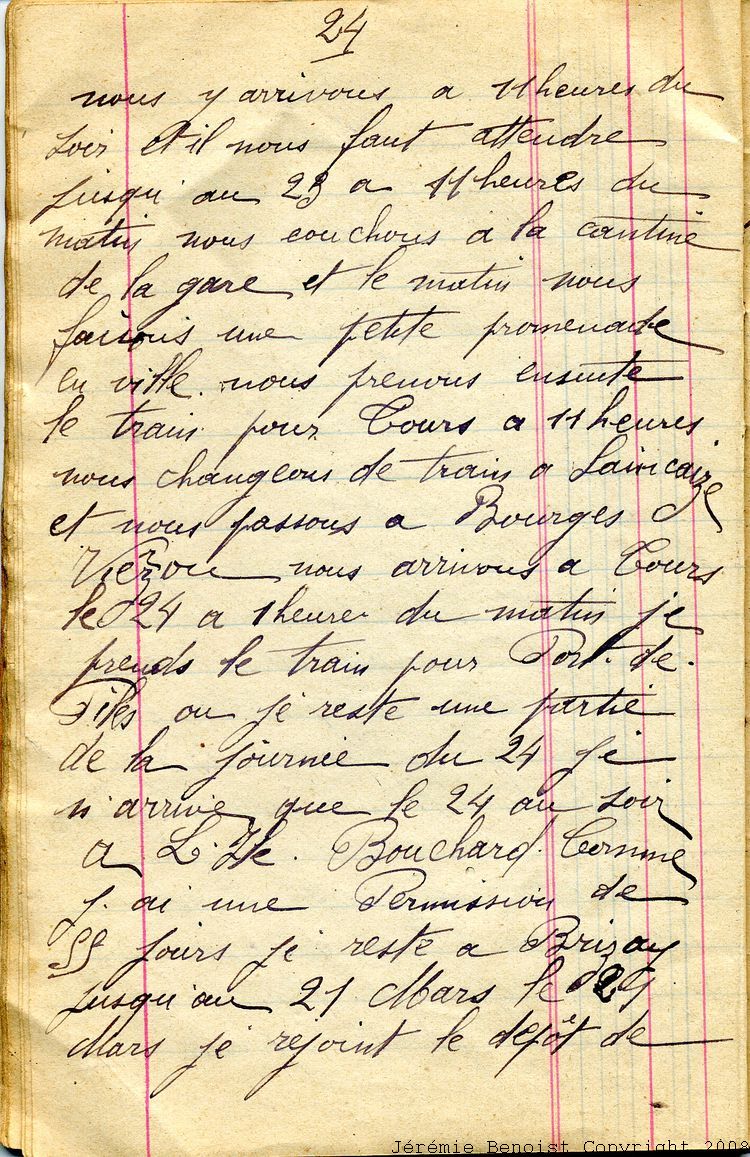 24
nous y arrivons a 11 heures du
soir et il nous faut attendre
jusqu'au 23 a 11 heures du
matin nous couchons a la cantine
de la gare et le matin nous
faisons une petite promenade
en ville. nous prenons ensuite
le train pour Tours a 11 heures
nous changeons de train a Saincaize
et nous passons a Bourges
Vierzon nous arrivons a Tours
le 24 a 1 heure du matin je
prends le train pour Port. de.
Piles ou je reste une partie
de la journée du 24 je
n'arrive que le 24 au soir
a L. Ile. Bouchard. Comme
j. ai une Permission de
jours je reste a Brizay
jusqu'au 21 Mars le
Mars je rejoint le depôt de
Jérémie Benoist Copyright 2008